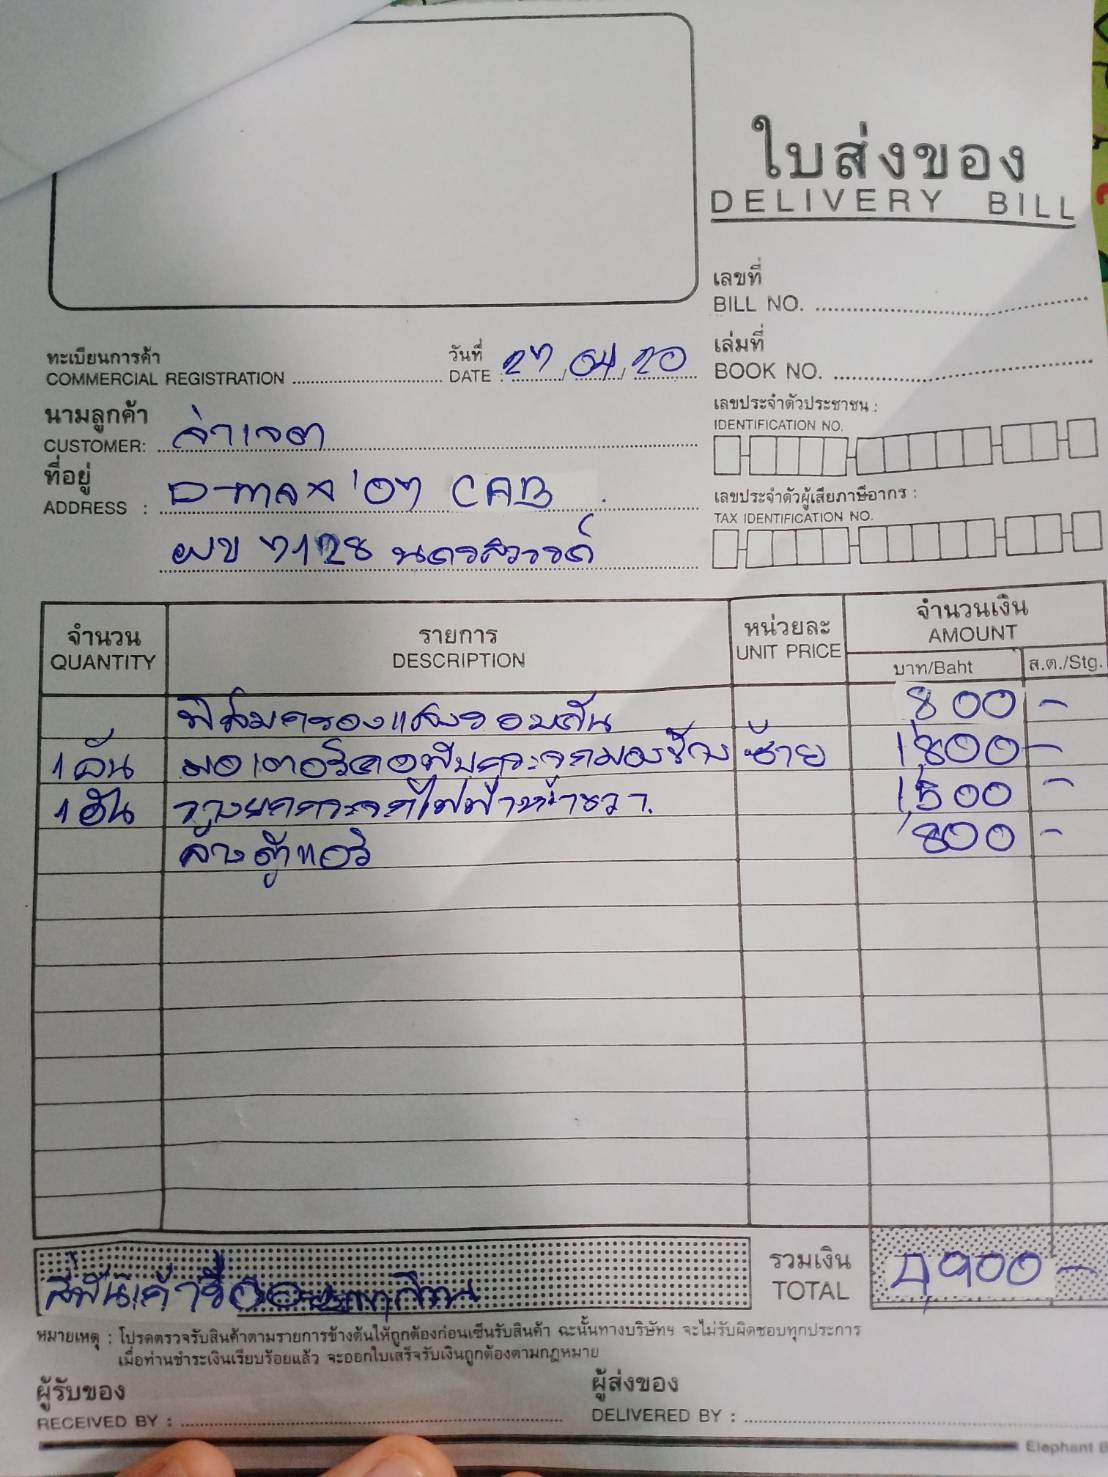 ใบส่งของ
DELIVERY BILL
เลขที่
BILL NO.
ทะเบียนการค้า
COMMERCIAL REGISTRATION
วันที่
DATE : 27/04/20
เล่มที่
BOOK NO.
นามลูกค้า
CUSTOMER: จ่าเจต
เลขประจำตัวประชาชน :
IDENTIFICATION NO.
ที่อยู่
ADDRESS : D-max '07 CAB
ผข 7128 นครสวรรค์
เลขประจำตัวผู้เสียภาษีอากร :
TAX IDENTIFICATION NO.
จำนวน รายการ หน่วยละ จำนวนเงิน
QUANTITY DESCRIPTION UNIT PRICE AMOUNT
บาท/Baht ส.ต./Stg.
ฟิล์มกรองแสงรอบคัน 800 -
1 อัน มอเตอร์คอพับกระจกมองข้าง ซ้าย 1,800 -
1 อัน รางยกกระจกไฟฟ้าหน้าขวา. 1,500 -
ล้างตู้แอร์ 800 -
สี่พันเก้าร้อย
รวมเงิน
TOTAL 4,900 -
หมายเหตุ : โปรดตรวจรับสินค้าตามรายการข้างต้นให้ถูกต้องก่อนเซ็นรับสินค้า ฉะนั้นทางบริษัทฯ จะไม่รับผิดชอบทุกประการ
เมื่อท่านชำระเงินเรียบร้อยแล้ว จะออกใบเสร็จรับเงินถูกต้องตามกฎหมาย
ผู้รับของ
RECEIVED BY :
ผู้ส่งของ
DELIVERED BY :
Elephant B